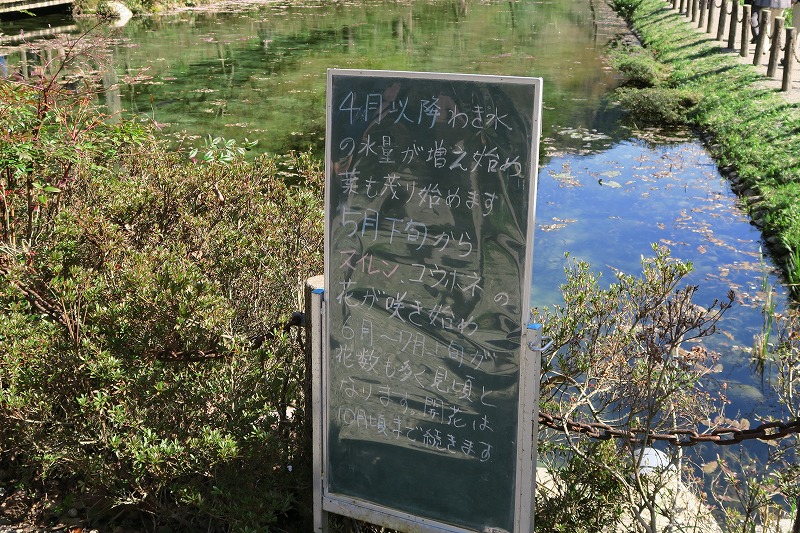 4月以降わき水
の水量が増え始め
葉も茂り始めます
5月下旬から
スイレン、コウホネの
花が咲き始め
6月〜7月上旬が
花数も多く見頃と
なります。開花は
10月頃まで続きます